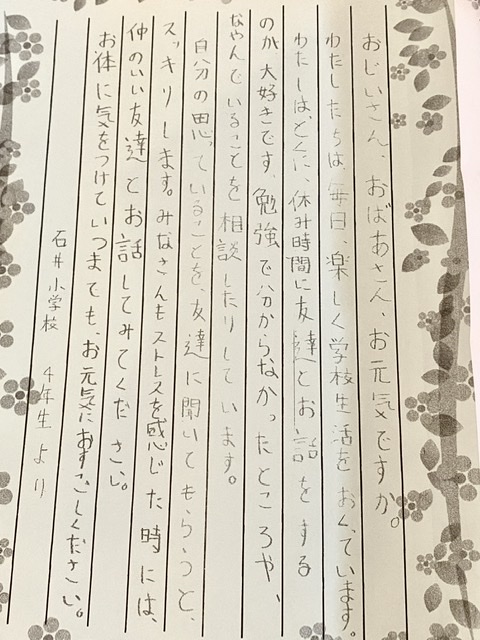 おじいさん、おばあさん、お元気ですか。
わたしたちは、毎日、楽しく学校生活をおくっています。
わたしは、とくに、休み時間に友達とお話をする
のが大好きです。勉強で分からなかったところや、
なやんでいることを相談したりしています。
自分の思っていることを、友達に聞いてもらうと、
スッキリします。みなさんもストレスを感じた時には、
仲のいい友達とお話してみてください。
お体に気をつけていつまでも、お元気におすごしください。
石井小学校 4年生より